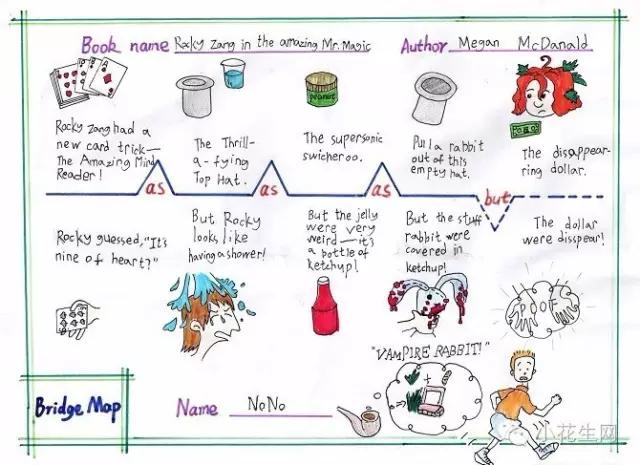 Book name Rocky Zang in the amazing Mr. Magic
Author Megan McDonald
Rocky Zang had a
new card trick—
The Amazing Mind
Reader!
The Thrill-
a-fying
Top Hat.
peanut
The supersonic
swicheroo.
Pull a rabbit
out of this
empty hat.
The disappear-
ring dollar.
as
as
as
but
Rocky guessed, "It's
nine of heart?"
But Rocky
looks like
having a shower!
But the jelly
were very
weird—it's
a bottle of
ketchup!
But the stuff
rabbit were
covered in
ketchup!
The dollar
were disspear!
SPOOFS
"VAMPIRE RABBIT!"
Bridge Map
Name NoNo
小花生网